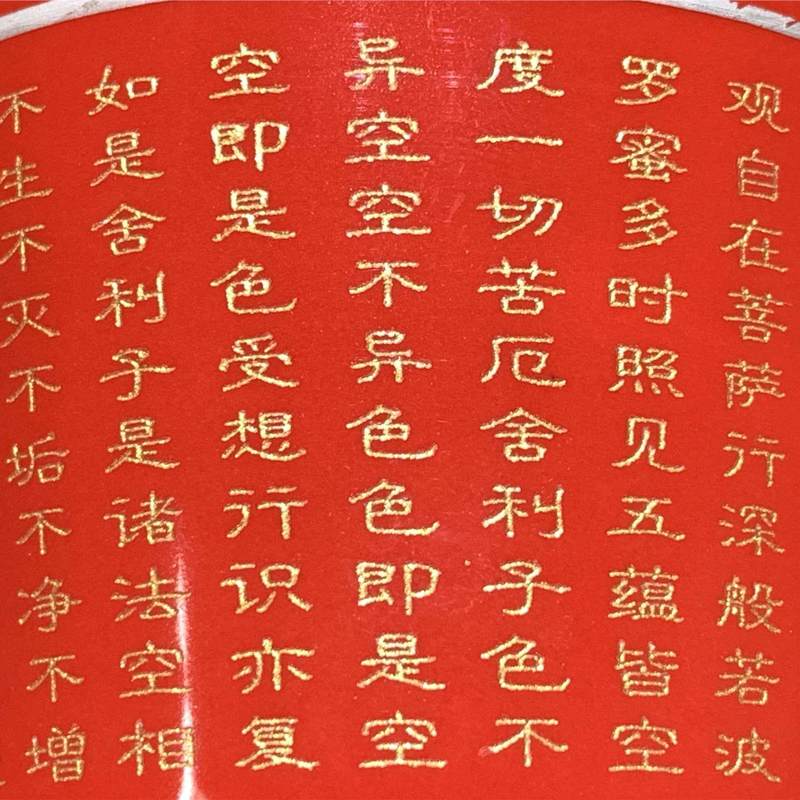 观自在菩萨行深般若波
罗蜜多时照见五蕴皆空
度一切苦厄舍利子色不
异空空不异色色即是空
空即是色受想行识亦复
如是舍利子是诸法空相
不生不灭不垢不净不增